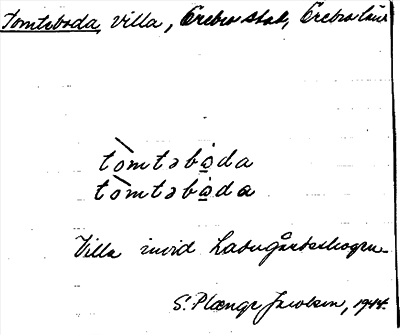 Tomteboda, villa, Örebro stad, Örebro län
tòmtəbo̲da
tòmtəbo̲da
Villa invid Ladugårdsskogen.
S. Plænge Jacobson, 1944.